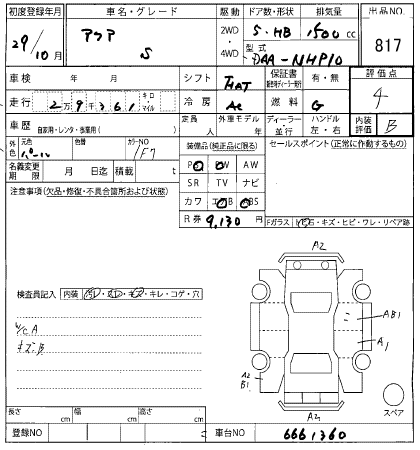 初度登録年月 車名・グレード 駆動 ドア数・形状 排気量 出品NO
29/10月 アクア S 2WD・4WD 5・HB 1500cc 817
型式 DAA-NHP10
車検 年 月 シフト FAT 保証書 有・無 評価点
走行 2万9千361 キロ・マイル 冷房 AC 燃料 G 4
車歴 自家用・レンタ・事業用( ) 定員 人 外車モデル 年 ディーラー・並行 ハンドル 左・右 内装評価 B
外色 元色 パール 色替 カラーNO 装備品(純正品に限る) セールスポイント(正常に作動するもの)
名義変更期限 月 日迄 積載 t
PS PW AW
SR TV ナビ
注意事項(欠品・修復・不具合箇所および状態) カワ エアB ABS
R券 9,130円
Fガラス
キズ・ヒビ・ワレ・リペア跡
A2
検査員記入 内装 汚レ・コレ・キズ・キレ・コゲ・穴
AB1
W/C A
A1
キズB
A2
B1
スペア
A2
長さ cm 幅 cm 高さ cm
登録NO 車台NO 6661360